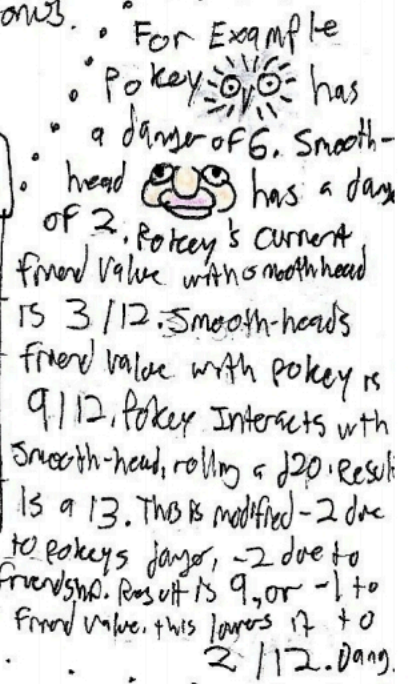 ows.
For Example
Pokey has
a danger of 6. Smooth-
head has a dang
of 2. Pokey's current
friend value with smoothhead
is 3/12. Smooth-heads
friend value with pokey is
9/12. Pokey Interacts wth
Smooth-head, rolling a d20. Result
is a 13. This is modified -2 due
to pokeys danger, -2 due to
friendship. Result is 9, or -1 to
friend value. this lowers it to
2/12. Dang.